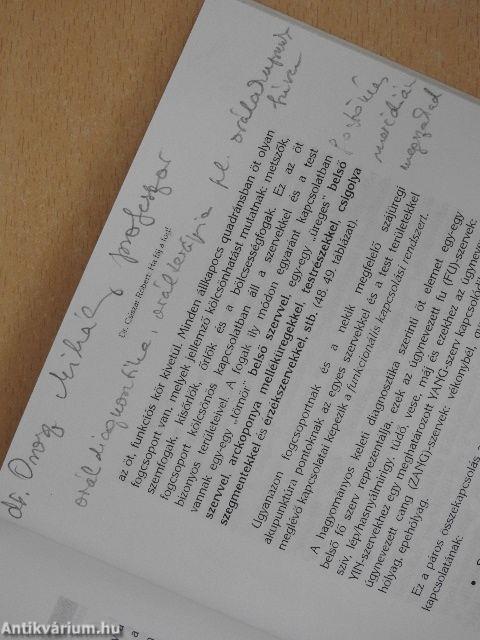 dr. Orosz Mihály professzor
oráldiagnosztika, orálterápia pl. orálakupunkt
híve
Dr. Csiszár Róbert: Ha fáj a foga!
az öt, funkciós kör kivetül. Minden állkapocs quadránsban öt olyan
fogcsoport van, melyek jellemző kölcsönhatást mutatnak: metszők,
szemfogak, kisőrlők, őrlők és a bölcsességfogak. Ez az öt
fogcsoport kölcsönös kapcsolatban áll a szervekkel és a test
bizonyos területeivel. A fogak ily módon egyaránt kapcsolatban
vannak egy-egy „tömör" belső szervvel, egy-egy „üreges" belső
szervvel, arckoponya melléküregekkel, testrészekkel, csigolya
szegmentekkel és érzékszervekkel, stb. (48. 49. táblázat).
Ugyanazon fogcsoportnak és a nekik megfelelő szájüregi
akupunktúra pontoknak az egyes szervekkel és a test területekkel
meglévő kapcsolatai képezik a funkcionális kapcsolási rendszert.
A hagyományos keleti diagnosztika szerinti öt elemet egy-egy
belső fő szerv reprezentálja, ezek az úgynevezett fu (FÜ)-szervek:
szív, lép/hasnyálmirigy, tüdő, vese, máj és ezekhez az úgynev
YIN-szervekhez egy meghatározott YANG-szerv kapcsolódi
úgynevezett cang (ZANG)-szervek: vékonybél, gy
hólyag, epehólyag.
Ez a páros összekapcsolás a
kapcsolatának:
Antikvárium.hu